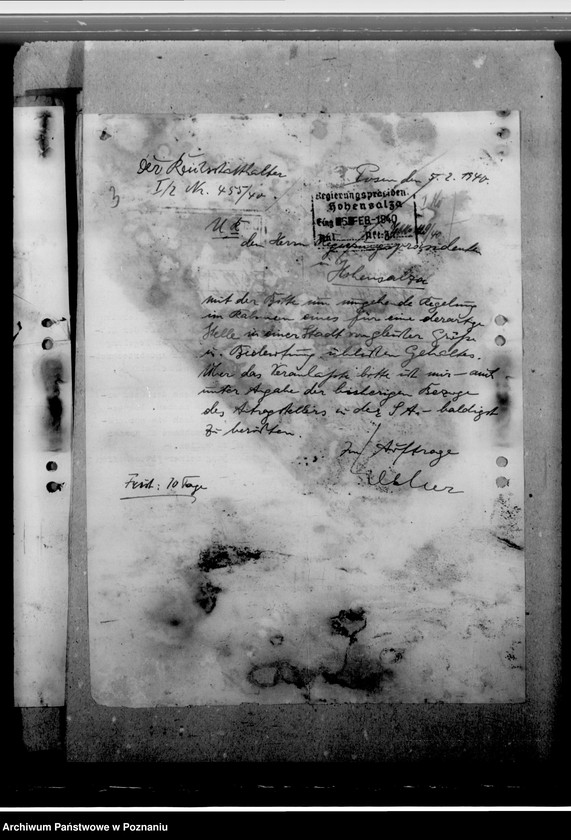 Der Reichsstatthalter
I/2 Nr. 455/40.
Posen den 5. 2. 1940.
3
Regierungspräsident
Hohensalza
Eing. 5. FEB. 1940
Anl. Akt.Z.
U. R.
dem Herrn Regierungspräsidenten
in
Hohensalza
mit der Bitte um umgehende Regelung
im Rahmen eines für eine derartige
Stelle in einer Stadt ungefährer Größe
u. Bedeutung üblichen Gehaltes.
Über das Veranlaßte bitte ich mir – auch
unter Angabe der bisherigen Bezüge
des Antragstellers in der S.A. – baldigst
zu berichten.
Im Auftrage
Frist: 10 Tage
Archiwum Państwowe w Poznaniu